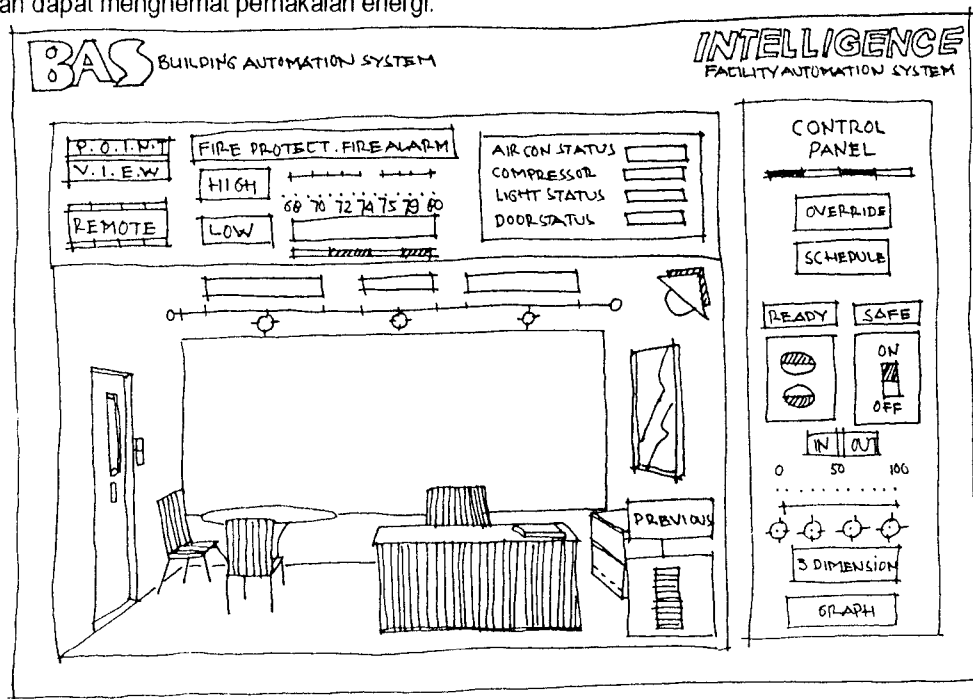 an dapat menghemat pemakaian energi.
BAS BUILDING AUTOMATION SYSTEM
INTELLIGENCE
FACILITY AUTOMATION SYSTEM
P.O.I.N.T
V.I.E.W
REMOTE
FIRE PROTECT. FIRE ALARM
HIGH
68 70 72 74 75 79 80
LOW
AIR CON STATUS
COMPRESSOR
LIGHT STATUS
DOOR STATUS
PREVIOUS
CONTROL
PANEL
OVERRIDE
SCHEDULE
READY SAFE
ON
OFF
IN OUT
0 50 100
3 DIMENSION
GRAPH